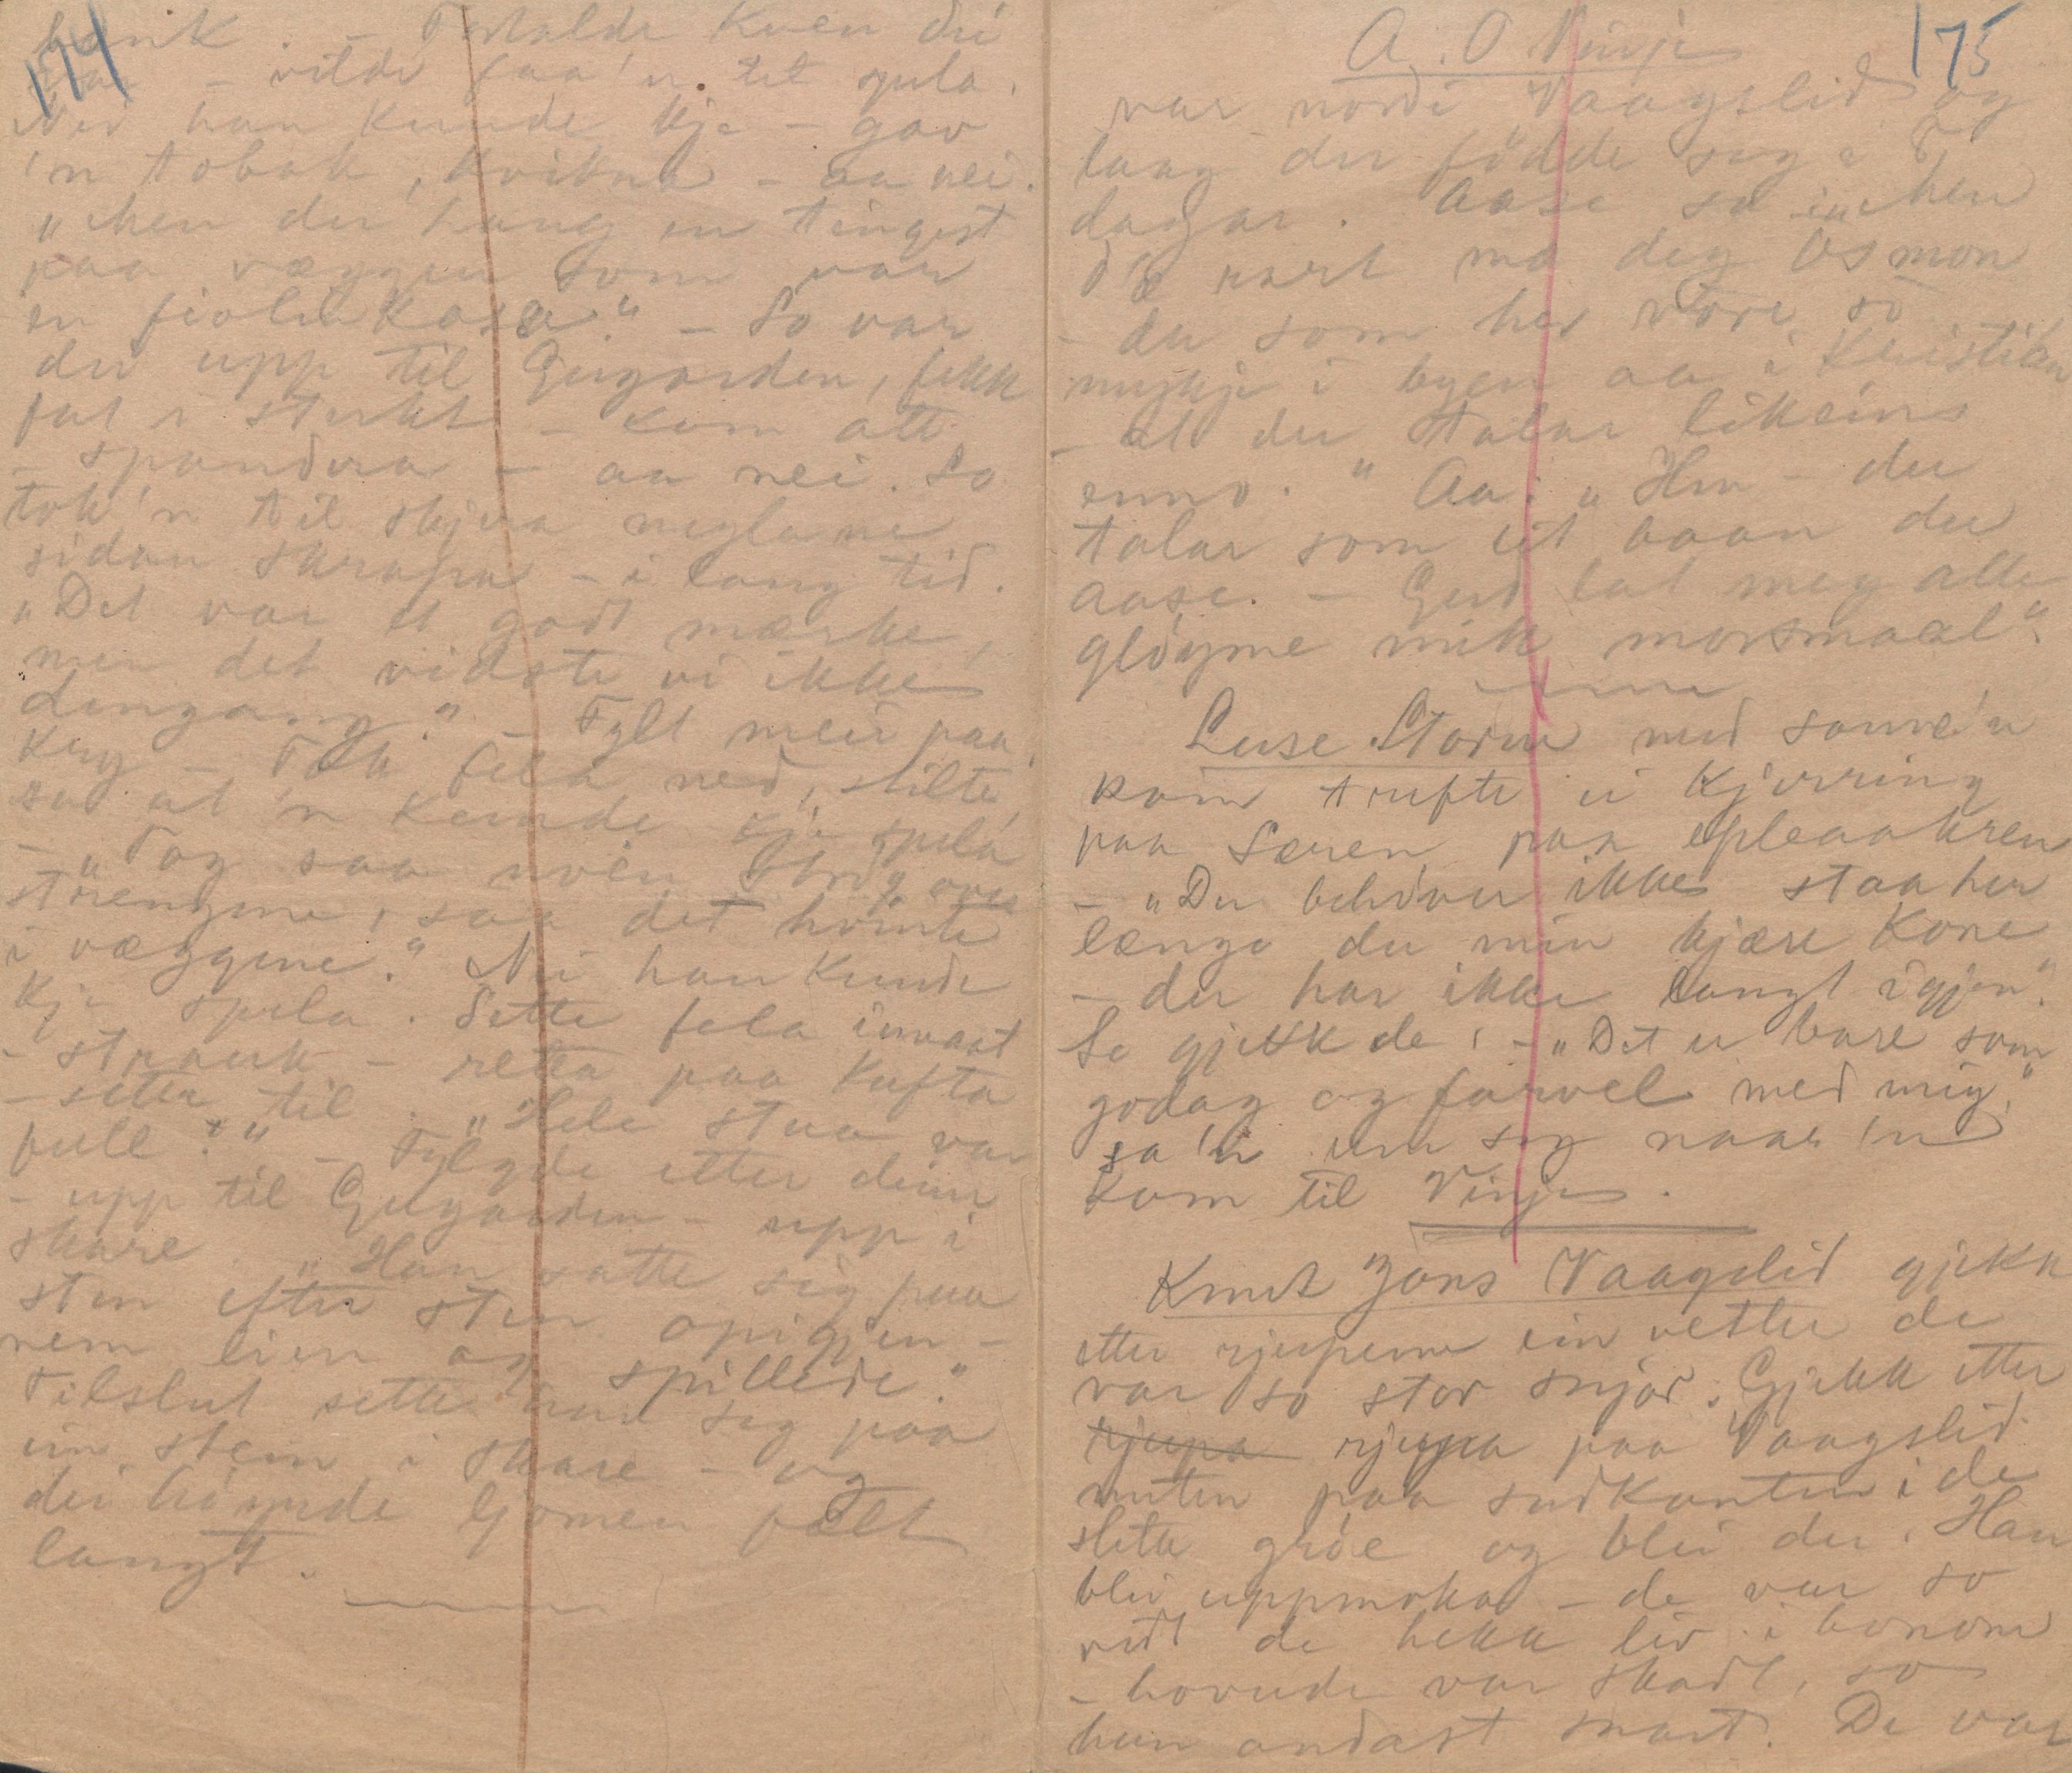 174
bank. – Fortalde kven dei
var – vilde faa'n til spela.
Nei han kunde kje – gav
'n tobak, kvikna – aa nei.
"Men der hang en tingest
paa væggen som var
en fiolinkasse." – So var
dei upp til Gugarden, fekk
fat i sterkt – kom att
– spandera – aa nei. So
tok'n til skjera neglane
sidan skrapa – i lang tid.
"Det var et godt mærke,
men det vidste vi ikke
dengang" – Fylt meir paa
krus – Tok fela ned, stilte,
sa at 'n kunde kje spela
– "Tog saa noen strøg over
strengene, saa det hvinte
i væggene." Nei han kunde
kje spela. Sette fela innaat
– strauk – retta paa kufta
– sette til. "Hele stua var
full." – Fylgde etter deim
– upp til Gugarden – upp i
skare. "Han satte sig paa
sten efter sten opigjen-
nem lien og spillede."
Tilslut sette han seg paa
ein stein i skare – og
dei høyrde ljomen fælt
langt.
175
A. O Vinje
var nordi Vaagslid og
laag der fødde seg i
dagar. Aase sa "Men
d'æ rart mæ deg Osmon
– du som her vore so
mykje i byen aa i Kristian
– at du talar likeins
enno." Aa: "Hm – du
talar som eit baan du
Aase. – Gud lat meg alle
gløyme mitt morsmaal".
Luse Storm med same'n
kom trefte ei kjerring
paa Særen paa epleaakren
– "Du behøver ikke staa her
længe du min kjære kone
– du har ikke langt igjen".
So gjekk de. – "Det er bare som
godag og farvel med mig."
sa'n um seg naar'n
kom til Vinje.
Knut Jons Vaagslid gjekk
etter rjupenne ein vetter de
var so stor snjor. Gjekk etter
rjupa rjupa paa Vaagslid
nuten paa sudkanten i de
sletta groe og blei der. Han
blei uppmoka – de var so
vidt de hekk liv i honom
– hovude var skadt, so
han andast snart. De var